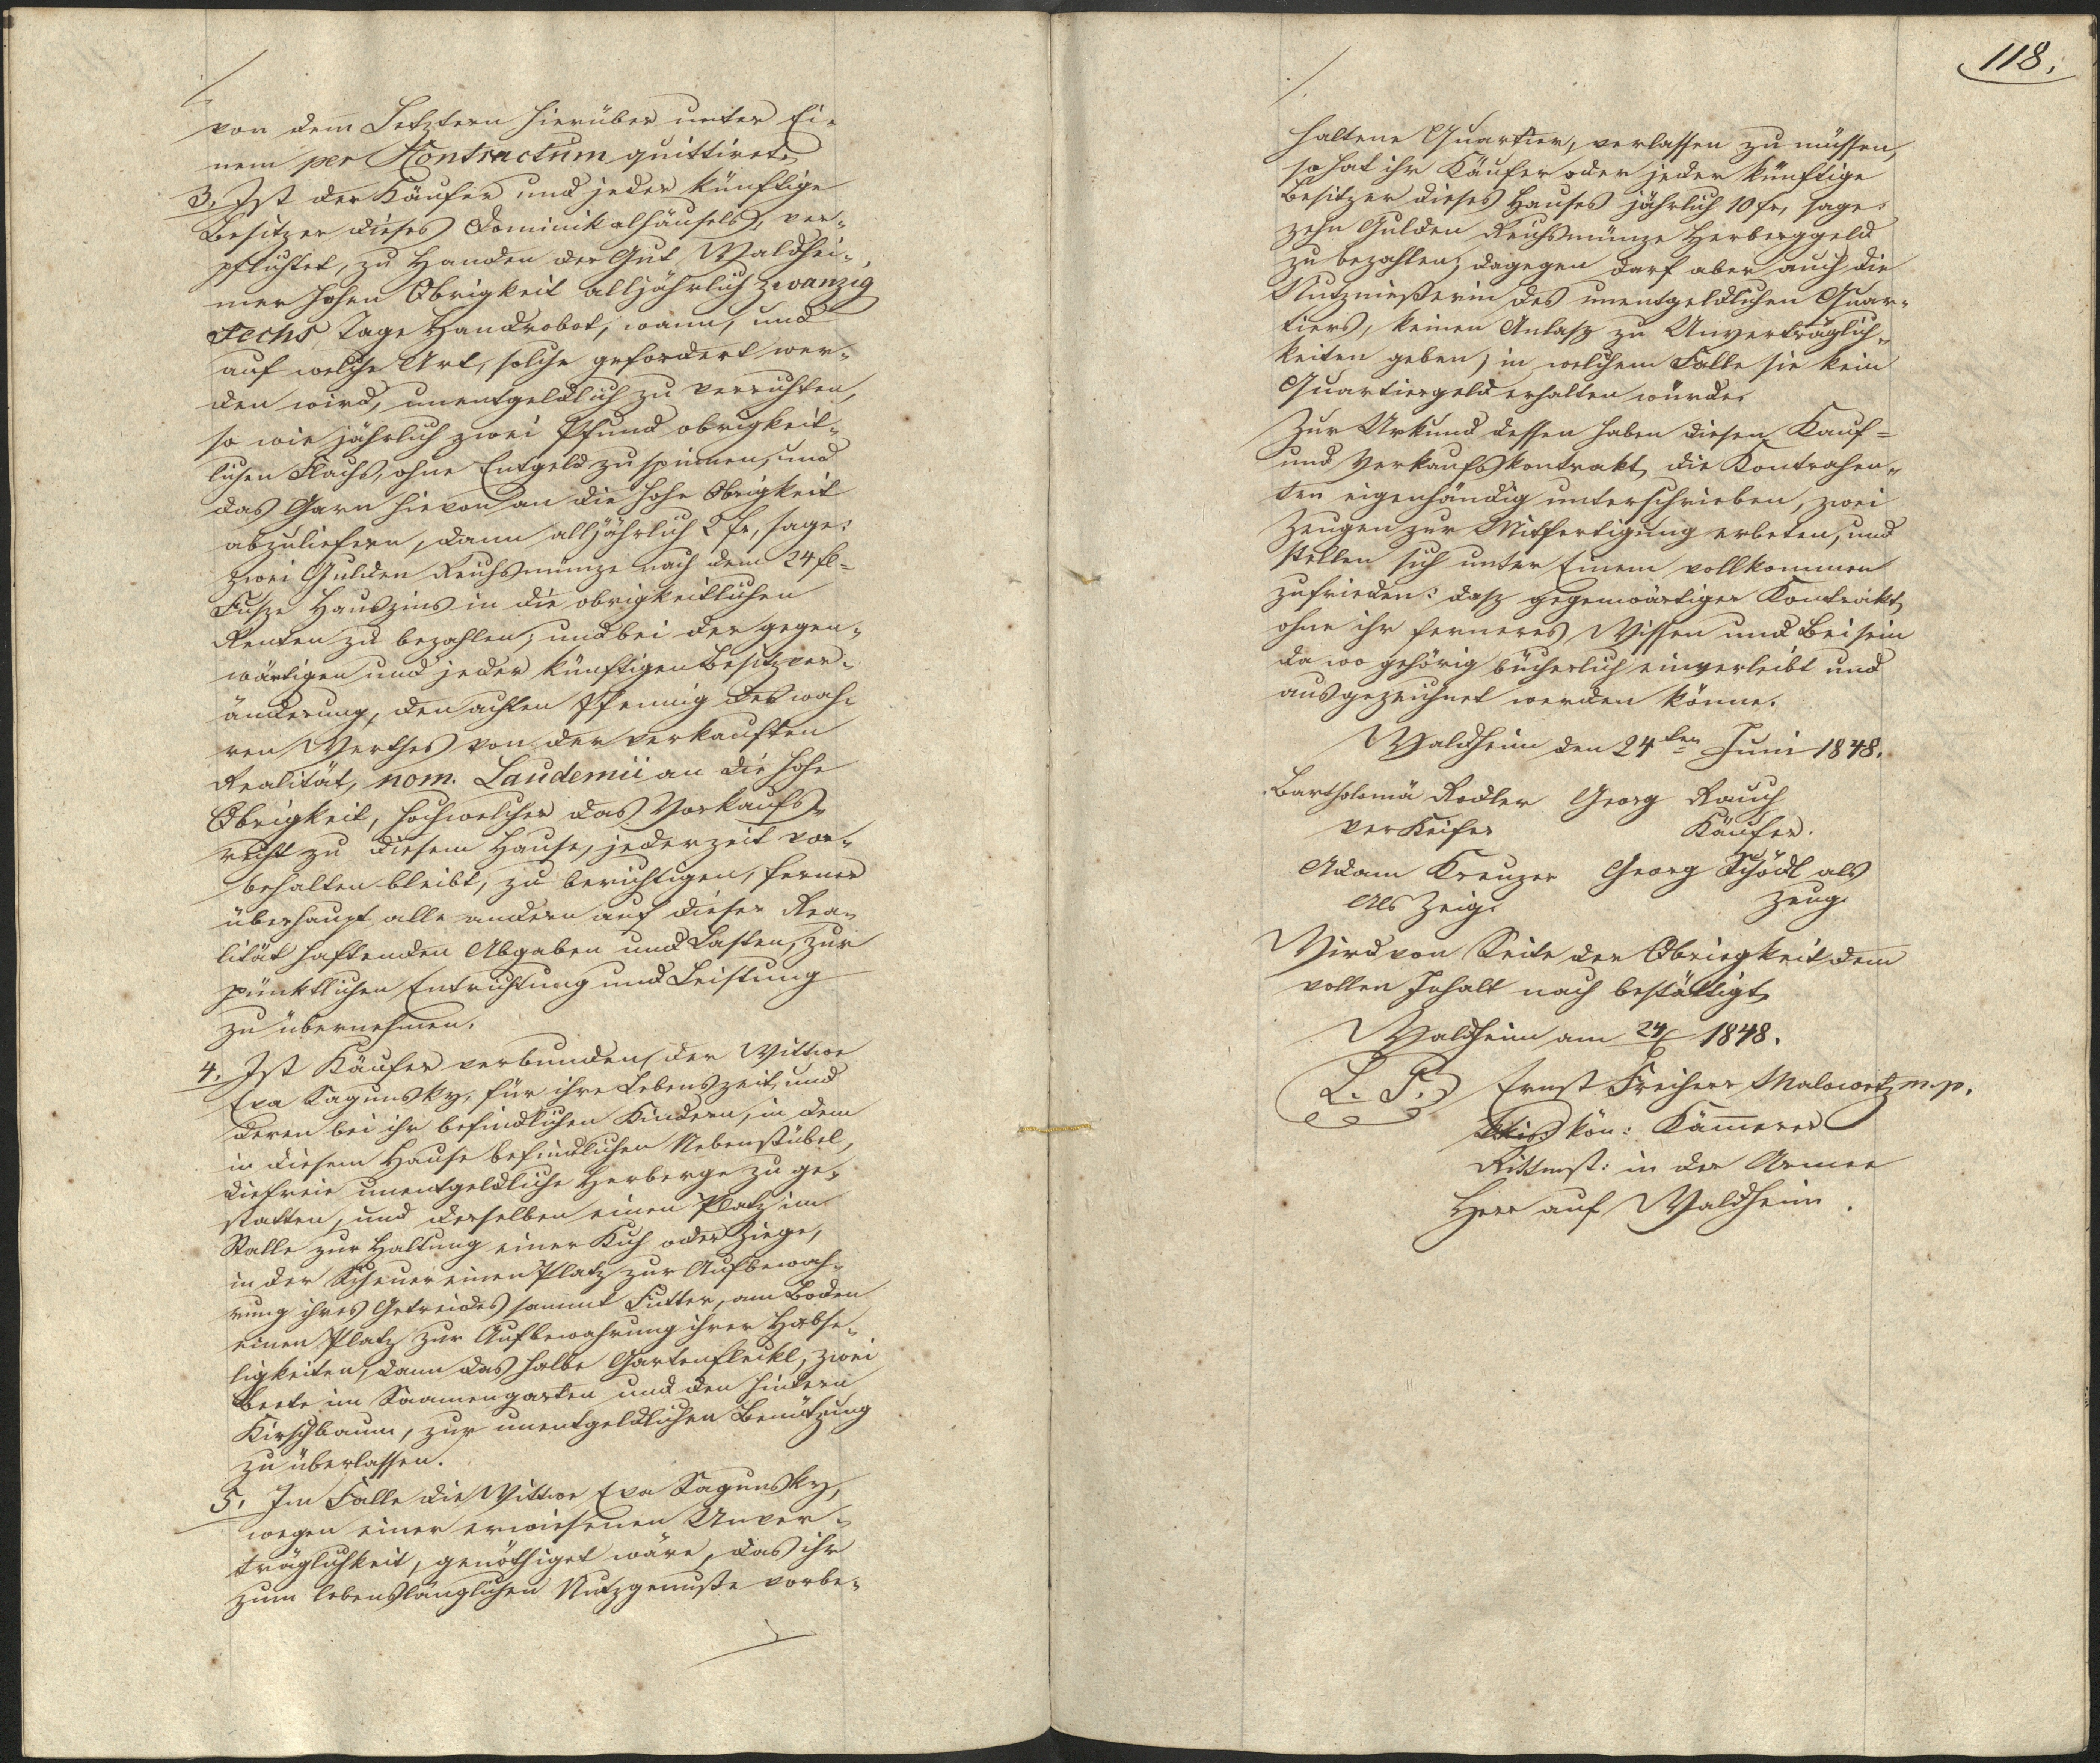 von dem Letztern hierüber unter Ei-
nem per Kontractum quittirt.
3. Ist der Käufer und jeder künftige
Besitzer dieses Dominikalhäusels, ver-
pflichtet, zu Handen der Gut Waldhei-
mer hohen Obrigkeit alljährlich zwanzig
sechs Tage Handrobot, wann, und
auf welche Art, solche gefordert wer-
den wird, unentgeldlich zu verrichten,
so wie jährlich zwei Pfund obrigkeit-
lichen Flachs, ohne Entgeld zu spinnen, und
das Garn hievon an die hohe Obrigkeit
abzuliefern, dann alljährlich 2 fr, sage:
zwei Gulden Reichsmünze nach dem 24 fl-
Fusze Hauszins in die obrigkeitlichen
Renten zu bezahlen, und bei der gegen-
wärtigen und jeder künftigen Besitzver-
änderung, den achten Pfennig des wah-
ren Werthes von der verkauften
Realität, nom. Laudemii an die hohe
Obrigkeit, hochwelcher das Vorkaufs-
recht zu diesem Hause, jederzeit vor-
behalten bleibt, zu berichtigen, ferner
überhaupt alle andern auf dieser Rea-
lität haftenden Abgaben und Lasten, zur
pünktlichen Entrichtung und Leistung
zu übernehmen.
4. Ist Käufer verbunden, der Wittwe
Eva Sagunsky, für ihre Lebenszeit, und
deren bei ihr befindlichen Kindern, in dem
in diesem Hause befindlichen Nebenstübel,
die freie unentgeldliche Herberge zu ge-
statten, und derselben einen Platz im
Stalle zur Haltung einer Kuh oder Ziege,
in der Scheuer einen Platz zur Aufbewah-
rung ihres Getreides sammt Futter, am Boden
einen Platz zur Aufbewahrung ihrer Habse-
ligkeiten, dann das halbe Gartenfleckl, zwei
Beete im Saamengarten und den hintern
Kirschbaum, zur unentgeldlichen Benützung
zu überlassen.
5. Im Falle die Wittwe Eva Sagunsky,
wegen einer erwiesenen Unver-
träglichkeit, genöthiget wäre, das ihr
zum lebenslänglichen Nutzgenuße vorbe-
118.
haltene Quartier, verlassen zu müssen,
so hat ihr Käufer oder jeder künftige
Besitzer dieses Hauses jährlich 10 fr, sage:
zehn Gulden Reichsmünze Herberggeld
zu bezahlen; dagegen darf aber auch die
Nutznießerin des unentgeldlichen Quar-
tiers, keinen Anlasz zu Unverträglich-
keiten geben, in welchem Falle sie kein
Quartiergeld erhalten würde.
Zur Urkund dessen haben diesen Kauf-
und Verkaufskontrakt, die Kontrahen-
ten eigenhändig unterschrieben, zwei
Zeugen zur Mitfertigung erbeten, und
stellen sich unter Einem vollkommen
zufrieden: dasz gegenwärtiger Kontrakt,
ohne ihr ferneres Wissen und Beisein
da wo gehörig bücherlich einverleibt und
ausgezeichnet werden könne.
Waldheim den 24ten Juni 1848.
Bartholomä Rodler Georg Rauch
Verkeifer Käufer.
Adam Kreuzer Georg Schödl als
Als Zeig. Zeug.
Wird von Seite der Obriegkeit dem
vollen Inhalt nach bestättigt.
Waldheim am 24/6 1848.
L. S. Ernst Freiherr Malowetz m.p.
kön: Kämmerer
Rittmst: in der Armee
Herr auf Waldheim.